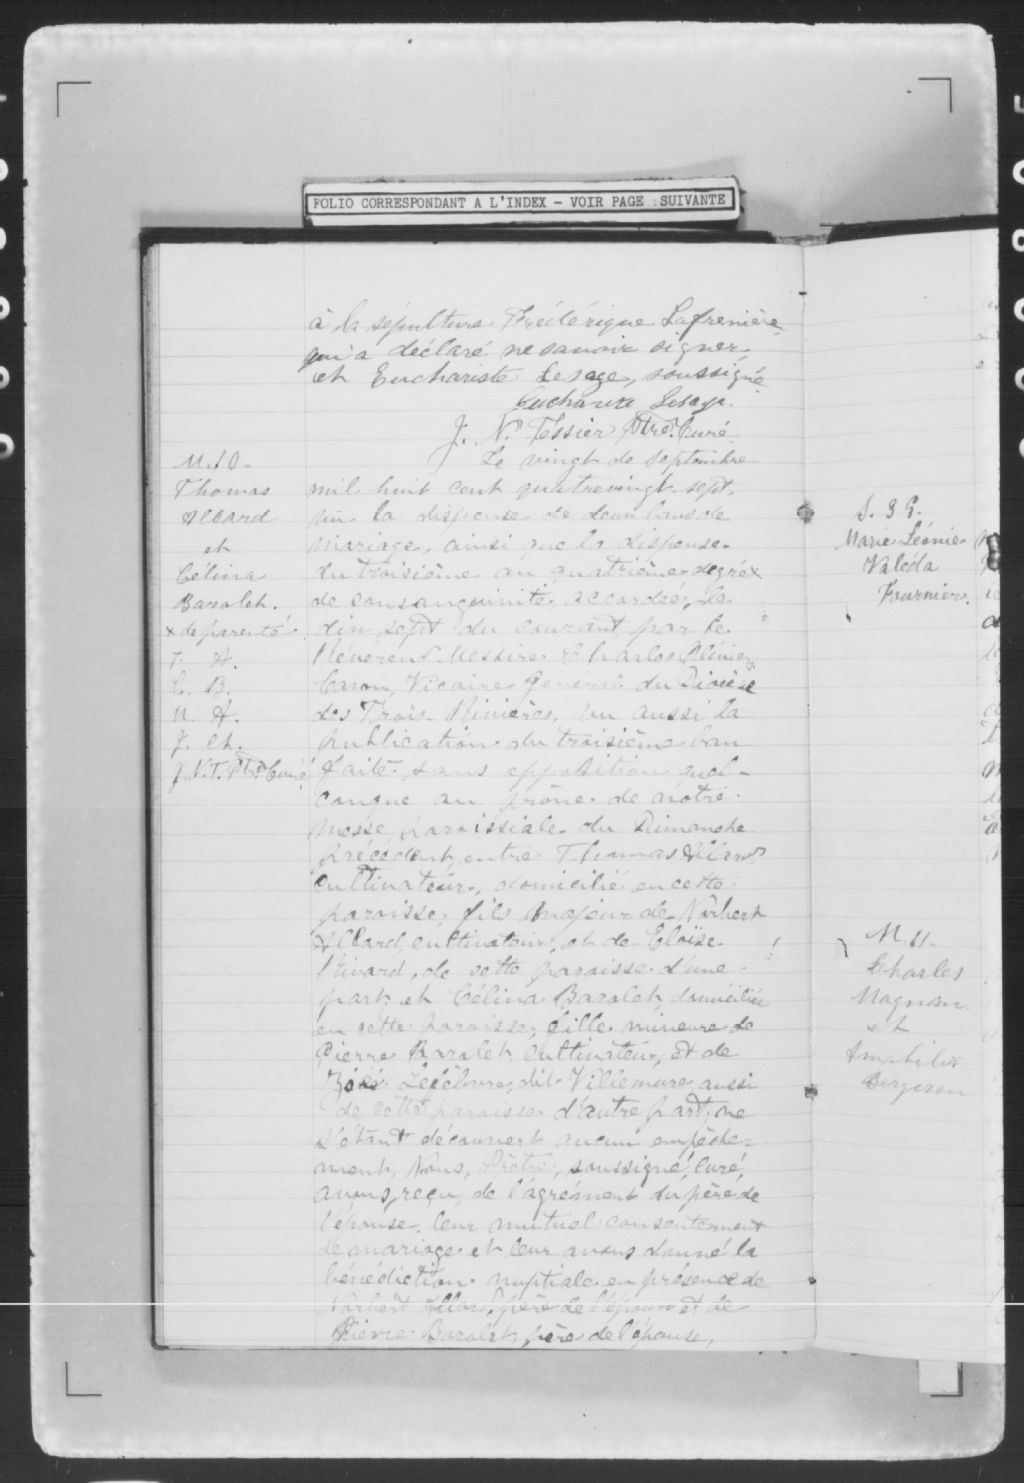 FOLIO CORRESPONDANT A L'INDEX - VOIR PAGE SUIVANTE
à la sépulture Frédérique Lafrenière
qui a déclaré ne savoir signer
et Euchariste Lesage, soussigné
Euchariste Lesage.
J. N. Tessier Ptre. Curé
M. 10.
Thomas
Allard
et
Célina
Baralet.
x de parenté
T. A.
C. B.
N. A.
J. N. T. Ptre Curé
Le vingt de septembre
mil huit cent quatrevingt-sept,
vu la dispense de deux bans de
mariage, ainsi que la dispense
du troisième au quatrième degré x
de consanguinité accordée, le
dix sept du courant par le
Révérend Messire Charles Olivier
Caron, Vicaire Général du Diocèse
des Trois-Rivières, vu aussi la
publication du troisième ban
faite, sans opposition quel-
conque au prône de notre
messe paroissiale du Dimanche
précédent, entre Thomas Allard
cultivateur, domicilié en cette
paroisse, fils majeur de Norbert
Allard, cultivateur, et de Eloïse
Rivard, de cette paroisse d'une
part; et Célina Baralet, domiciliée
en cette paroisse, fille mineure de
Pierre Baralet, cultivateur, et de
Zoé Lefebvre dit Villemure, aussi
de cette paroisse d'autre part; ne
s'étant découvert aucun empêche-
ment, Nous, Prêtre, soussigné, Curé,
avons reçu, de l'agrément du père de
l'épouse, leur mutuel consentement
de mariage et leur avons donné la
bénédiction nuptiale en présence de
Norbert Allard, père de l'époux et de
Pierre Baralet, père de l'épouse,
S. 39.
Marie Léonie
Valéda
Fournier.
M. 11.
Charles
Magnan
et
Amabilis
Bergeron